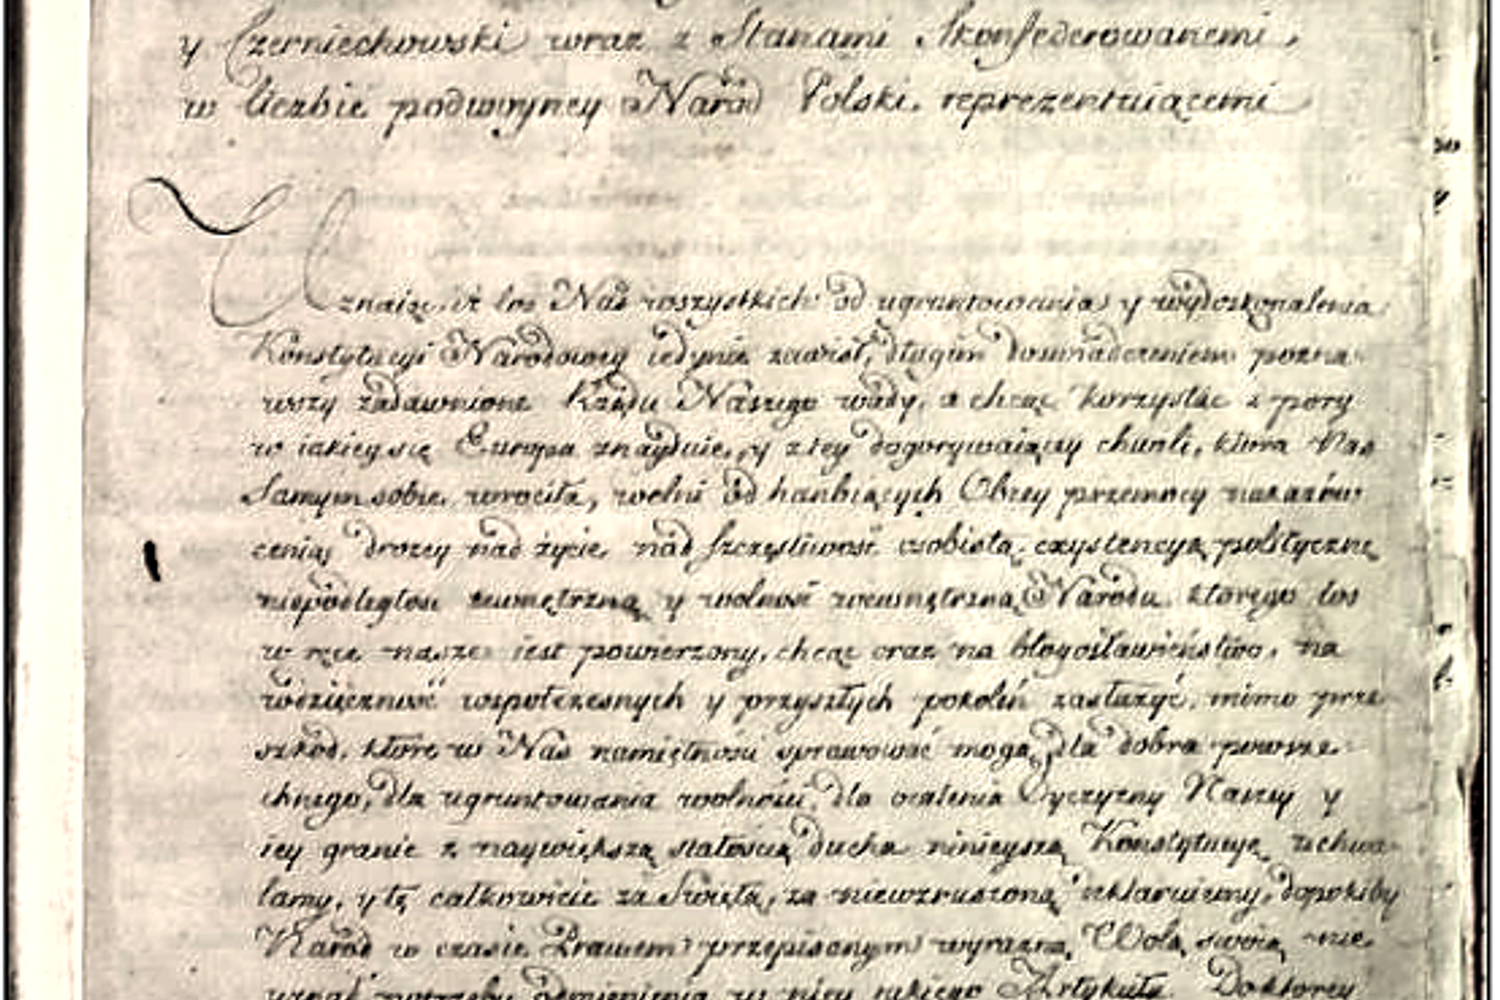 y Czerniechowski wraz z Stanami Skonfederowanemi,
w liczbie podwoyney Naród Polski reprezentuiącemi
Uznaiąc, iż los Nas wszystkich od ugruntowania y wydoskonalenia
Konstytucyi Narodowey iedynie zawisł, długim doświadczeniem pozna-
wszy zadawnione Rządu Naszego wady, a chcąc korzystać z pory
w iakiey się Europa znayduie, y z tey dogorywaiącey chwili, która Nas
Samym sobie wrociła, wolni od hańbiących Obcey przemocy nakazów
ceniąc drożey nad życie, nad szczęśliwość osobistą, exystencyą polityczną
niepodległość zewnętrzną y wolność wewnętrzną Narodu, którego los
w ręce nasze iest powierzony, chcąc oraz na błogosławieństwo, na
wdzięczność współczesnych y przyszłych pokoleń zasłużyć, mimo prze-
szkod, które w Nas namiętności sprawować mogą, dla dobra powsze-
chnego, dla ugruntowania wolności, dla ocalenia Oyczyzny Naszey y
iey granic z naywiększą stałością ducha ninieyszą Konstytucyę uchwa-
lamy, y tę całkowicie za Świętą, za niewzruszoną deklaruiemy, dopokiby
Naród w czasie Prawem przepisanym wyraźną Wolą swoią nie
uznał potrzeby odmienienia w niey iakiego Artykułu. Do którey